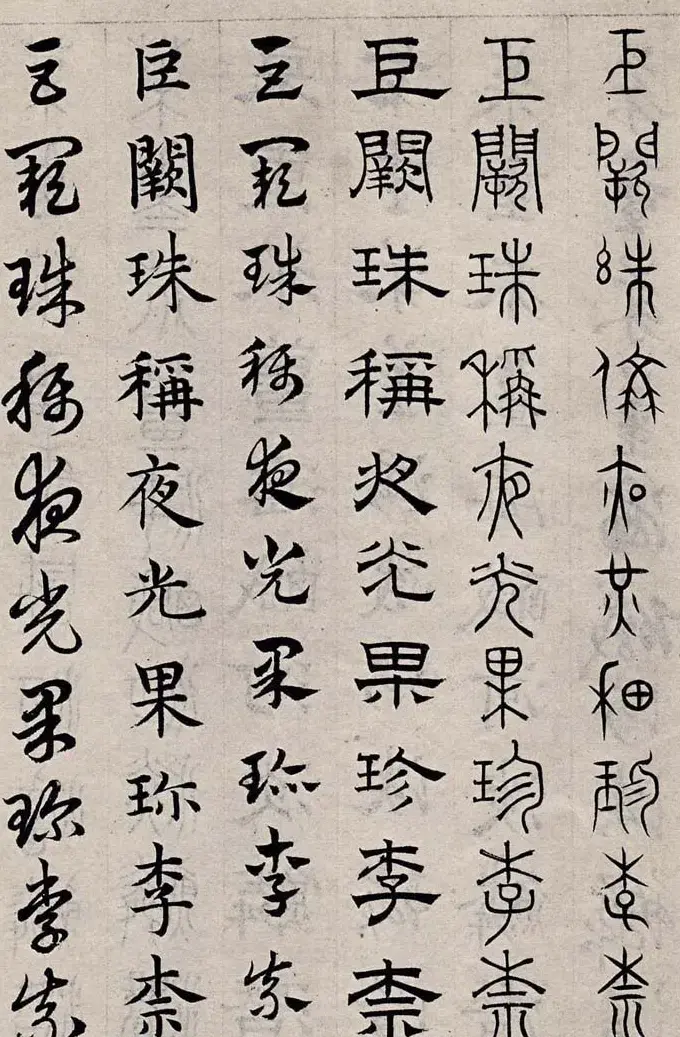 巨闕珠稱夜光果珍李柰
巨闕珠稱夜光果珍李柰
巨闕珠稱夜光果珍李柰
巨闕珠稱夜光果珍李柰
巨闕珠稱夜光果珎李柰
巨闕珠稱夜光果珎李柰